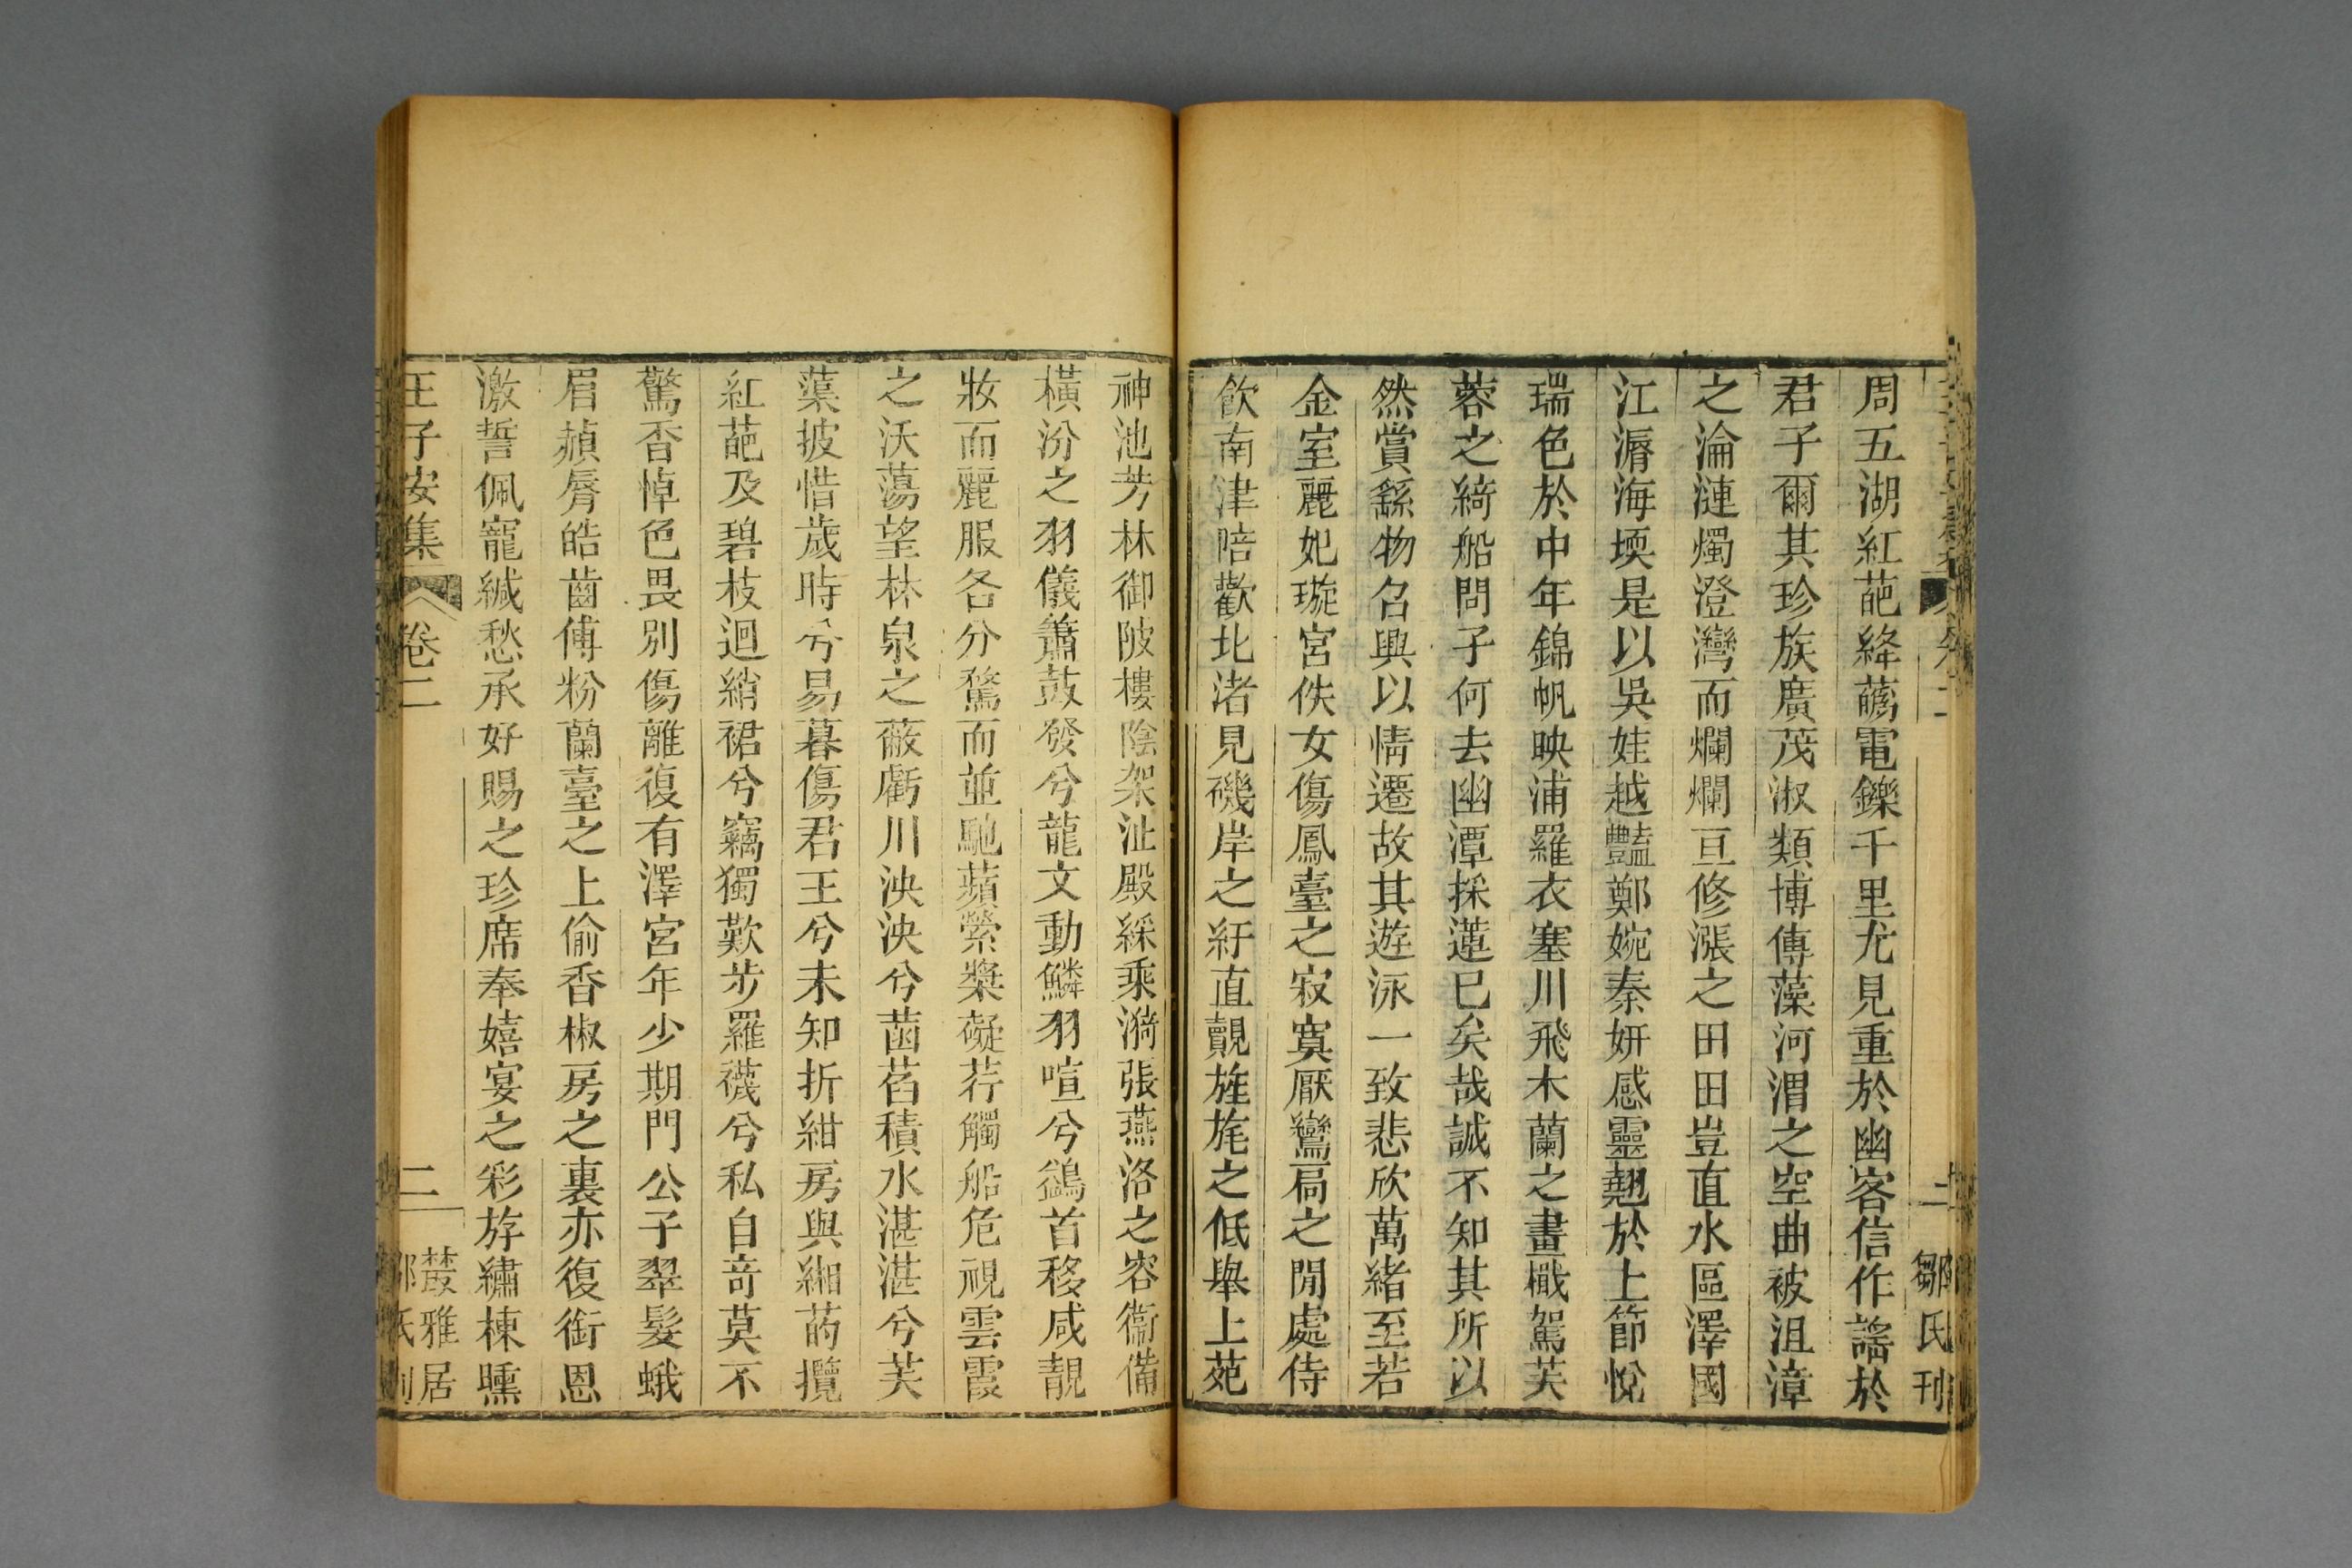 周五湖紅葩絳蘤電鑠千里尤見重於幽客信作謠於
君子爾其珍族廣茂淑類博傳藻河渭之空曲被沮漳
之淪漣燭澄灣而爛爛亘修漲之田田豈直水區澤國
江漘海堧是以吳娃越豔鄭婉秦妍感靈翹於上節悅
瑞色於中年錦帆映浦羅衣塞川飛木蘭之畫檝駕芙
蓉之綺船問子何去幽潭採蓮已矣哉誠不知其所以
然賞繇物召興以情遷故其遊泳一致悲欣萬緒至若
金室麗妃璇宮佚女傷鳳臺之寂寞厭鸞扃之閒處侍
飲南津陪歡北渚見磯岸之紆直覿旌旄之低舉上苑
神池芳林御陂樓陰架沚殿綵乘漪張燕洛之容衞備
橫汾之羽儀簫鼓發兮龍文動鱗羽喧兮鷁首移咸靚
妝而麗服各分鶩而並馳蘋縈槳礙荇觸船危視雲霞
之沃蕩望林泉之蔽虧川泱泱兮菡萏積水湛湛兮芙
蕖披惜歲時兮易暮傷君王兮未知折紺房與緗菂攬
紅葩及碧枝迴綃裙兮竊獨歎步羅襪兮私自奇莫不
驚香悼色畏別傷離復有澤宮年少期門公子翠髮蛾
眉赬脣皓齒傅粉蘭臺之上偷香椒房之裏亦復銜恩
激誓佩寵緘愁承好賜之珍席奉嬉宴之彩斿繡棟曛
王子安集 卷二 二 叢雅居
鄒氏刊